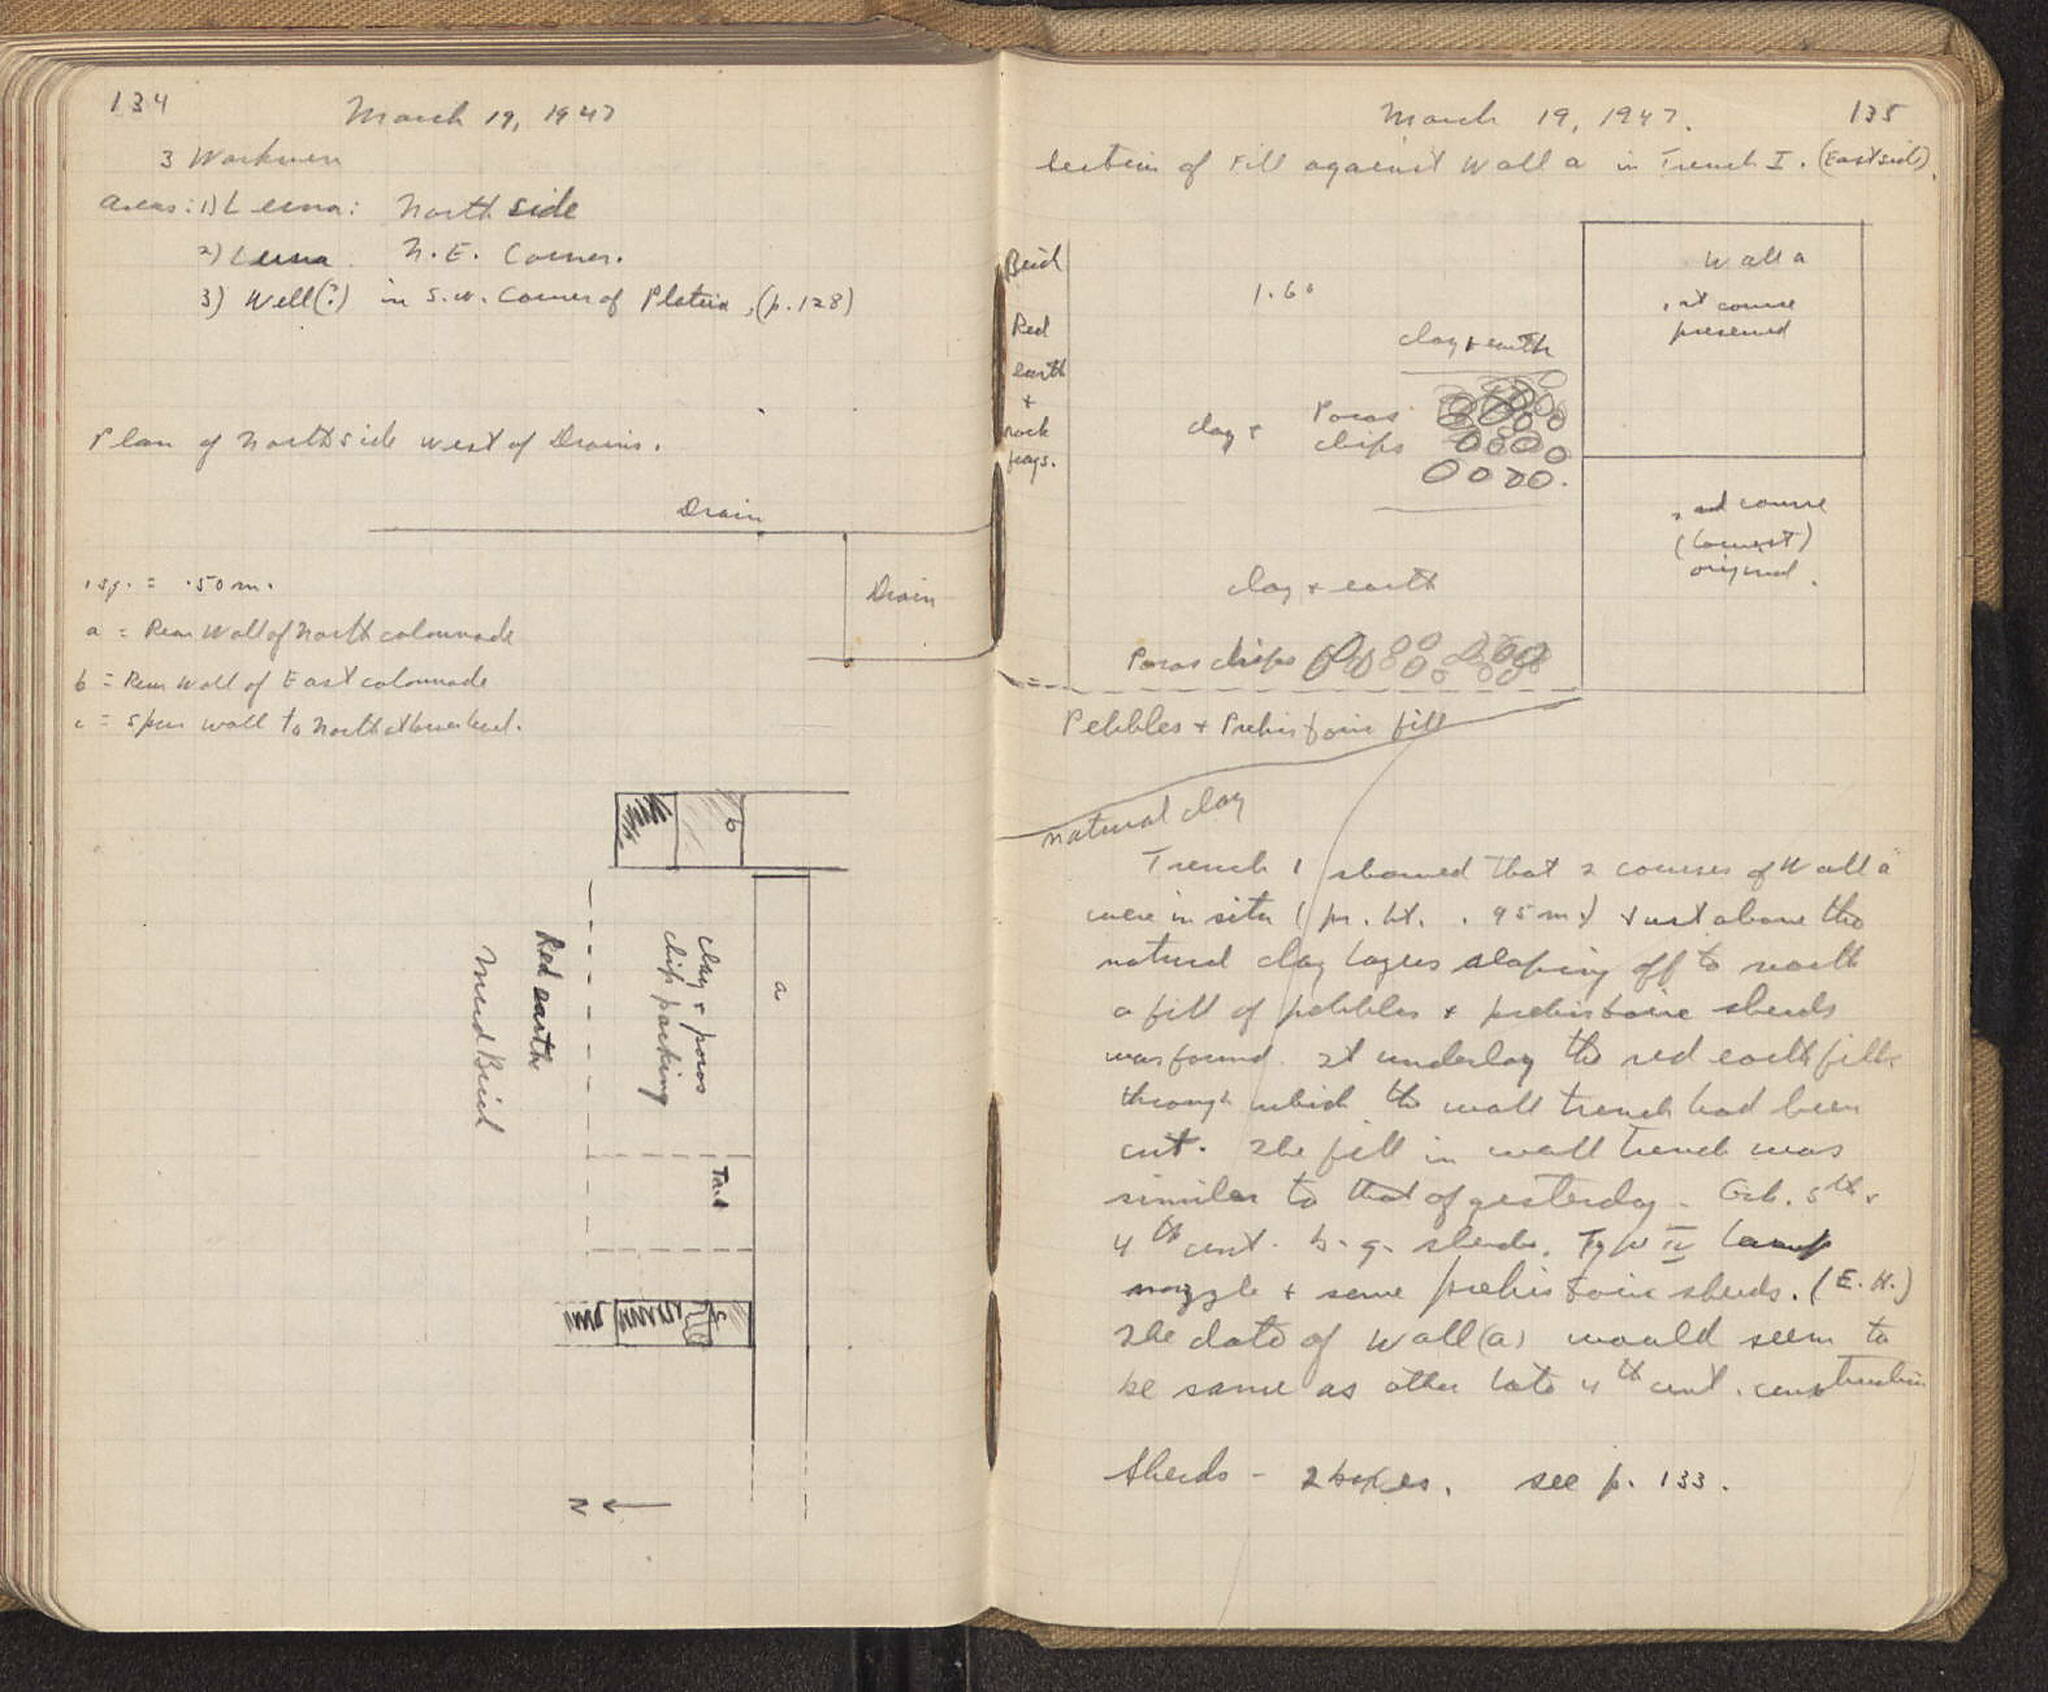 134
March 19, 1947
3 Workmen
Areas: 1) Lerna: North side
2) Lerna N.E. Corner.
3) Well(?) in S.W. Corner of Plateia, (p. 128)
Plan of North side west of Drains.
Drain
Drain
1 sq. = .50 m.
a = Rear Wall of North colonnade
b = Rear Wall of East colonnade
c = Spur wall to North at lower level.
b
a
clay + poros
chip packing
Red earth
Mud Brick
Test
c
N
March 19, 1947.
135
Section of Fill against Wall a in Trench I. (East side).
Brick
Red
earth
+
rock
frags.
1.60
clay + earth
clay +
Poros
chips
clay + earth
Poros chips
Wall a
1st course
preserved
2nd course
(lowest)
original.
Pebbles + Prehistoric fill
natural clay
Trench 1 showed that 2 courses of Wall a
were in situ (pr. ht. .95 m.) + just above the
natural clay layers sloping off to north
a fill of pebbles + prehistoric sherds
was found. It underlay the red earth fill
through which the wall trench had been
cut. The fill in wall trench was
similar to that of yesterday - Gk. 5th +
4th cent. b. g. sherds, Type IV lamp
nozzle + some prehistoric sherds. (E. H.)
The date of Wall (a) would seem to
be same as other late 4th cent. construction
Sherds - 2 boxes. see p. 133.